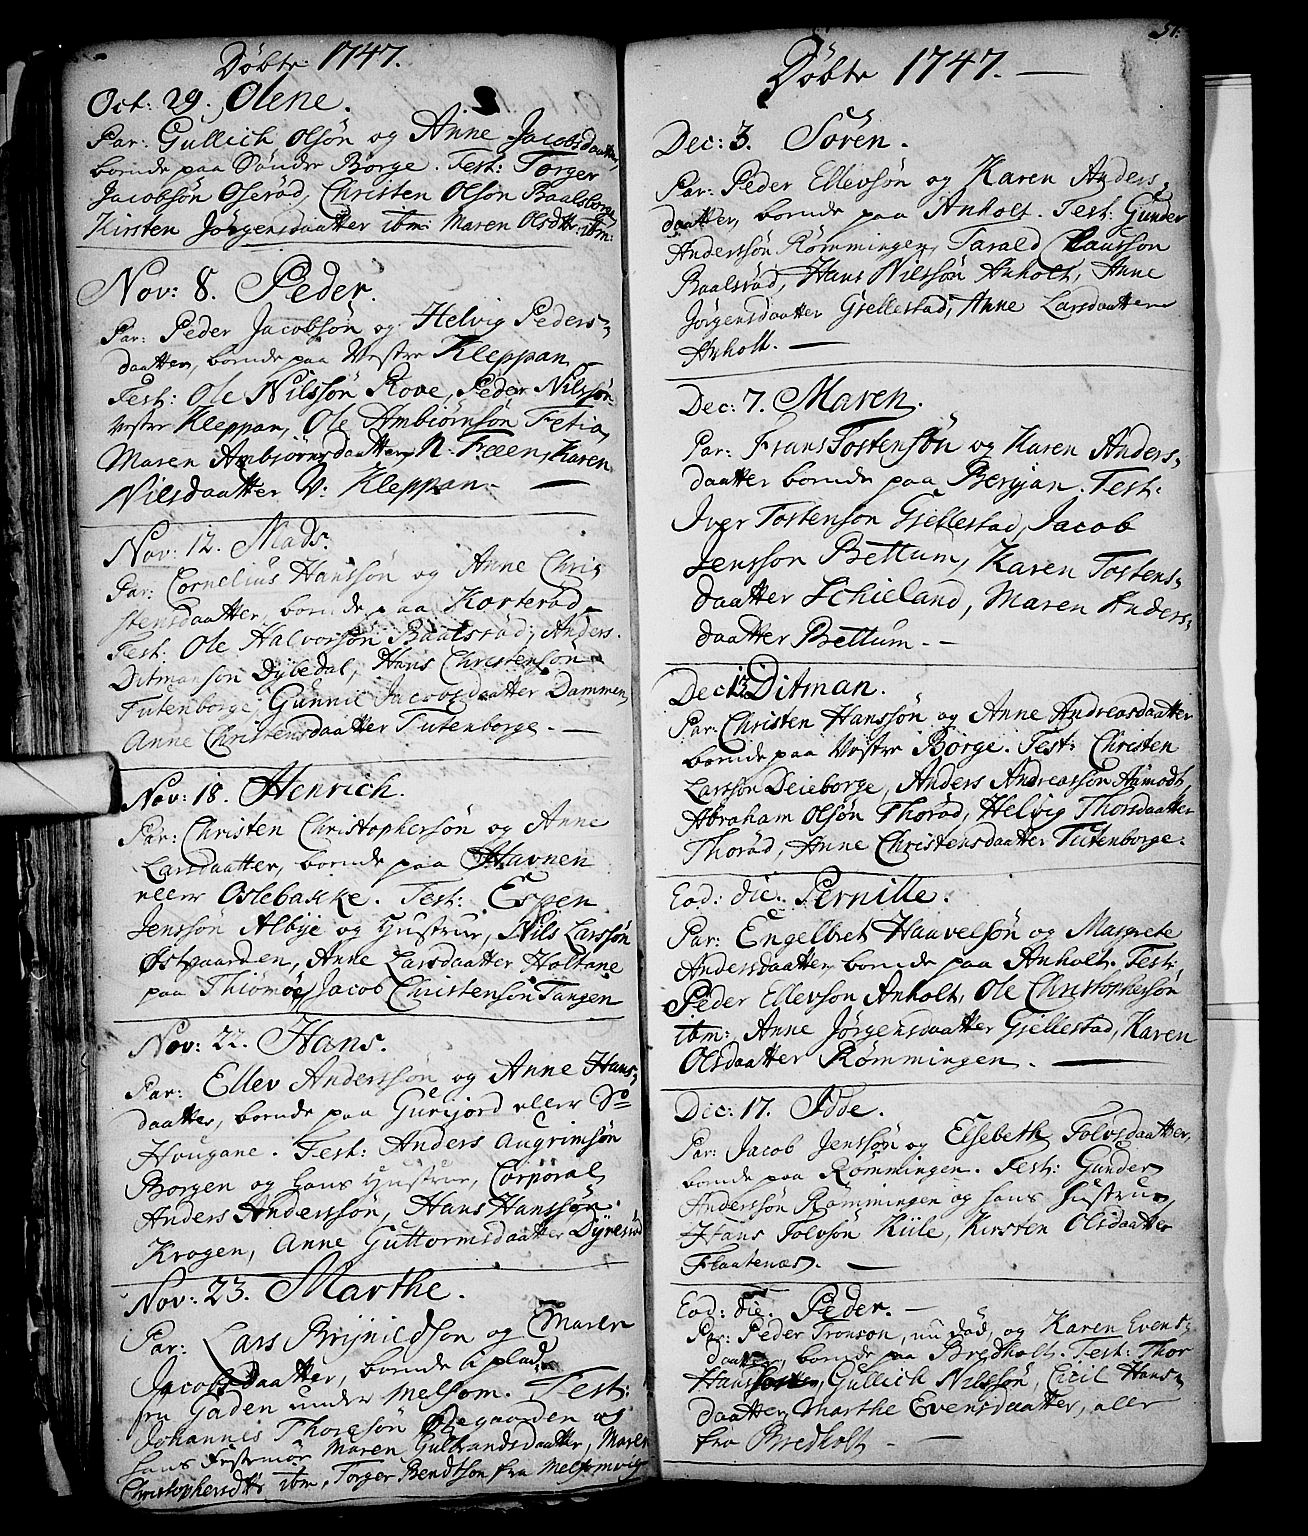 Døbte 1747.
Oct: 29. Olene.
Par: Gullich Olsøn og Anne Jacobsdaatter,
boende paa Søndre Borge. Test: Torger
Jacobsøn Oserød, Christen Olsøn Baalsborge,
Kirsten Jørgensdaatter ibm: Maren Olsdttr: ibm:
Nov: 8. Peder.
Par: Peder Jacobsøn og Helvig Peders-
daatter, boende paa Vestre Kleppan
Test: Ole Nilssøn Rove, Peder Nilssøn
Vestre Kleppan, Ole Ambiørnsøn Fetia,
Maren Ambjørnsdaatter N. Fæen, Karen
Nilsdaatter V: Kleppan. —
Nov: 12. Mads.
Par: Cornelius Hanssøn og Anne Chri-
stensdaatter, boende paa Korterød.
Test: Ole Halvorsøn Baalsrød, Anders
Ditmansøn Dybedal, Hans Christensøn
Tutenborge, Gunnil Jacobsdaatter Dammen,
Anne Christensdaatter Tutenborge. —
Nov: 18. Henrich.
Par: Christen Christophersøn og Anne
Larsdaatter, boende paa Havnen
eller Oslebakke. Test: Espen
Jenssøn Albye og Hustrue, Nils Larssøn
Østgaarden, Anne Larsdaatter Holtane
paa Thiømøe, Jacob Christensøn Tangen
Nov: 22. Hans.
Par: Ellev Anderssøn og Anne Hans-
daatter, boende paa Gurijord eller So
Hougane. Test: Anders Augrimsøn
Borgen og hans Hustrue, Corporal
Anders Anderssøn, Hans Hanssøn
Krogen, Anne Guttormsdaatter Dyresød
Nov: 23. Marthe.
Par: Lars Brynildsøn og Maren
Jacobsdaatter, boende i plads
fra Gaden under Melsom. Test:
Johannis Thoresøn Øegaarden og
hans Festemøe Maren Gulbrandsdaatter, Maren
Christophersdtr ibm, Torger Bendtsøn fra Melsomvig
51.
Døbte 1747. —
Dec: 3. Søren.
Par: Peder Ellevsøn og Karen Anders-
daatter, boende paa Anholt. Test: Gunder
Anderssøn Rømmingen, Tarald Claussøn
Baalsrød, Hans Nilssøn Anholt, Anne
Jørgensdaatter Gjellestad, Anne Larsdaatter
Anholt. —
Dec: 7. Maren.
Par: Frans Tostensøn og Karen Anders-
daatter boende paa Bergan. Test:
Iver Tostensøn Gjellestad, Jacob
Jenssøn Bettum, Karen Tostens-
daatter Schieland, Maren Anders-
daatter Bettum. —
Dec: 13. Ditman.
Par: Christen Hanssøn og Anne Andreasdaatter
boende paa Vestre Borge. Test: Christen
Larssøn Deieborge, Anders Andreassøn Aamodt,
Abraham Olsøn Thorød, Helvig Thorsdaatter
Thorød, Anne Christensdaatter Tutenborge.
Eod: die. Pernille.
Par: Engelbret Haavelsøn og Margrete
Andersdaatter boende paa Anholt. Test:
Peder Ellevsøn Anholt, Ole Christophersøn
ibm: Anne Jørgensdaatter Gjellestad, Karen
Olsdaatter Rømmingen. —
Dec: 17. Idde.
Par: Jacob Jenssøn og Elsebeth Tolvsdaatter,
boende paa Rømmingen. Test: Gunder
Anderssøn Rømmingen og hans Hustrue,
Hans Tolvsøn Kiile, Kirsten Olsdaatter
Flaatenæs. —
Eod: die. Peder. —
Par: Peder Tronsøn, nu død, og Karen Evens-
daatter, boende paa Bredholt. Test: Thor
Hanssøn, Gullich Nilssøn, Cicil Hans-
daatter, Marthe Evensdaatter, alle
fra Bredholt. —